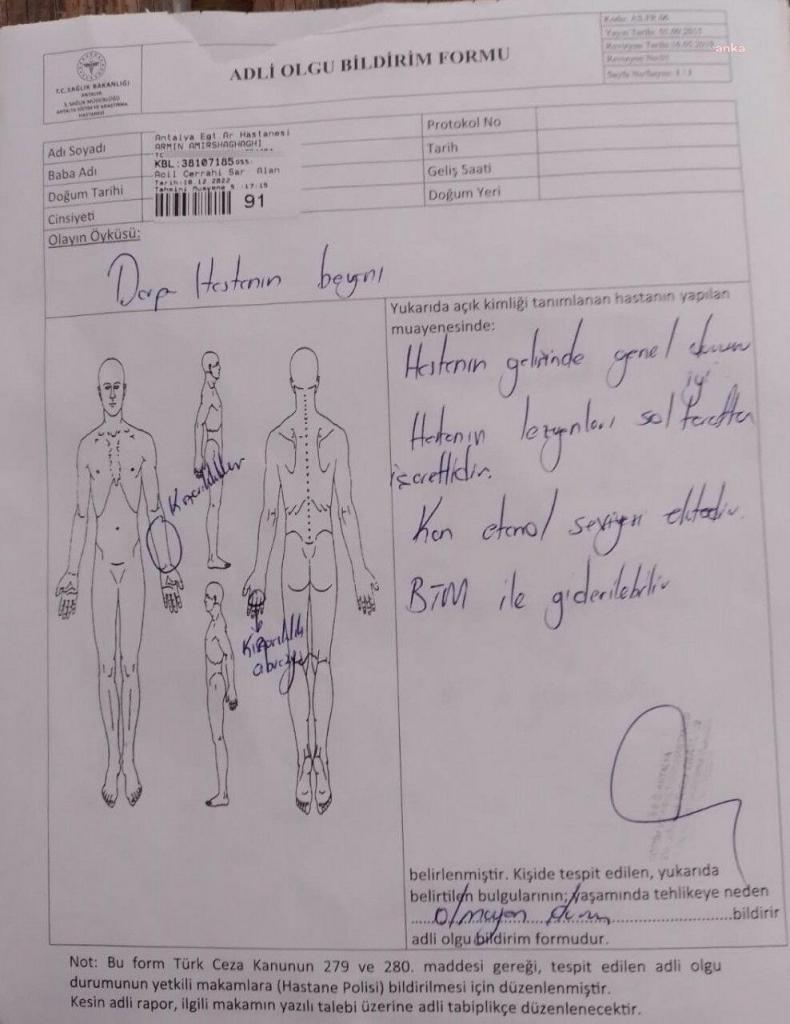 anka
T.C. SAĞLIK BAKANLIĞI
ANTALYA
İL SAĞLIK MÜDÜRLÜĞÜ
ANTALYA EĞİTİM VE ARAŞTIRMA
HASTANESİ
ADLİ OLGU BİLDİRİM FORMU
Adı Soyadı
Baba Adı
Doğum Tarihi
Cinsiyeti
Antalya Egt.Ar Hastanesi
ARMIN AMIRSHAGHAGHI
TC
KBL:38107185
Acil Cerrahi Sar Alan
Tarih:18.12.2022
17:15
91
Protokol No
Tarih
Geliş Saati
Doğum Yeri
Olayın Öyküsü:
Darp Hastanın beyanı
Yukarıda açık kimliği tanımlanan hastanın yapılan
muayenesinde:
Hastanın gelişinde genel durum
iyi
Hastanın lezyonları sol taraftan
işaretlidir.
Kan etanol seviyesi ektedir.
BTM ile giderilebilir
Kızarıklıklar
belirlenmiştir. Kişide tespit edilen, yukarıda
belirtilen bulgularının; yaşamında tehlikeye neden
olmayan durum bildirir
adli olgu bildirim formudur.
Not: Bu form Türk Ceza Kanunun 279 ve 280. maddesi gereği, tespit edilen adli olgu
durumunun yetkili makamlara (Hastane Polisi) bildirilmesi için düzenlenmiştir.
Kesin adli rapor, ilgili makamın yazılı talebi üzerine adli tabiplikçe düzenlenecektir.